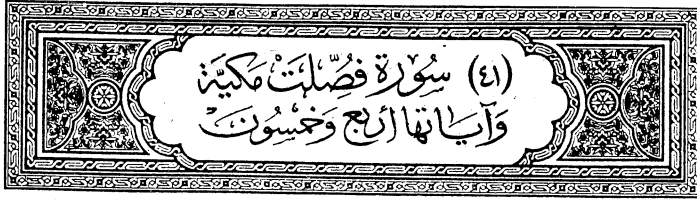 (٤١) سُورَة فُصِّلَتْ مَكيَّة
وَآيَاتهَا أَرْبَع وَخَمْسُونَ